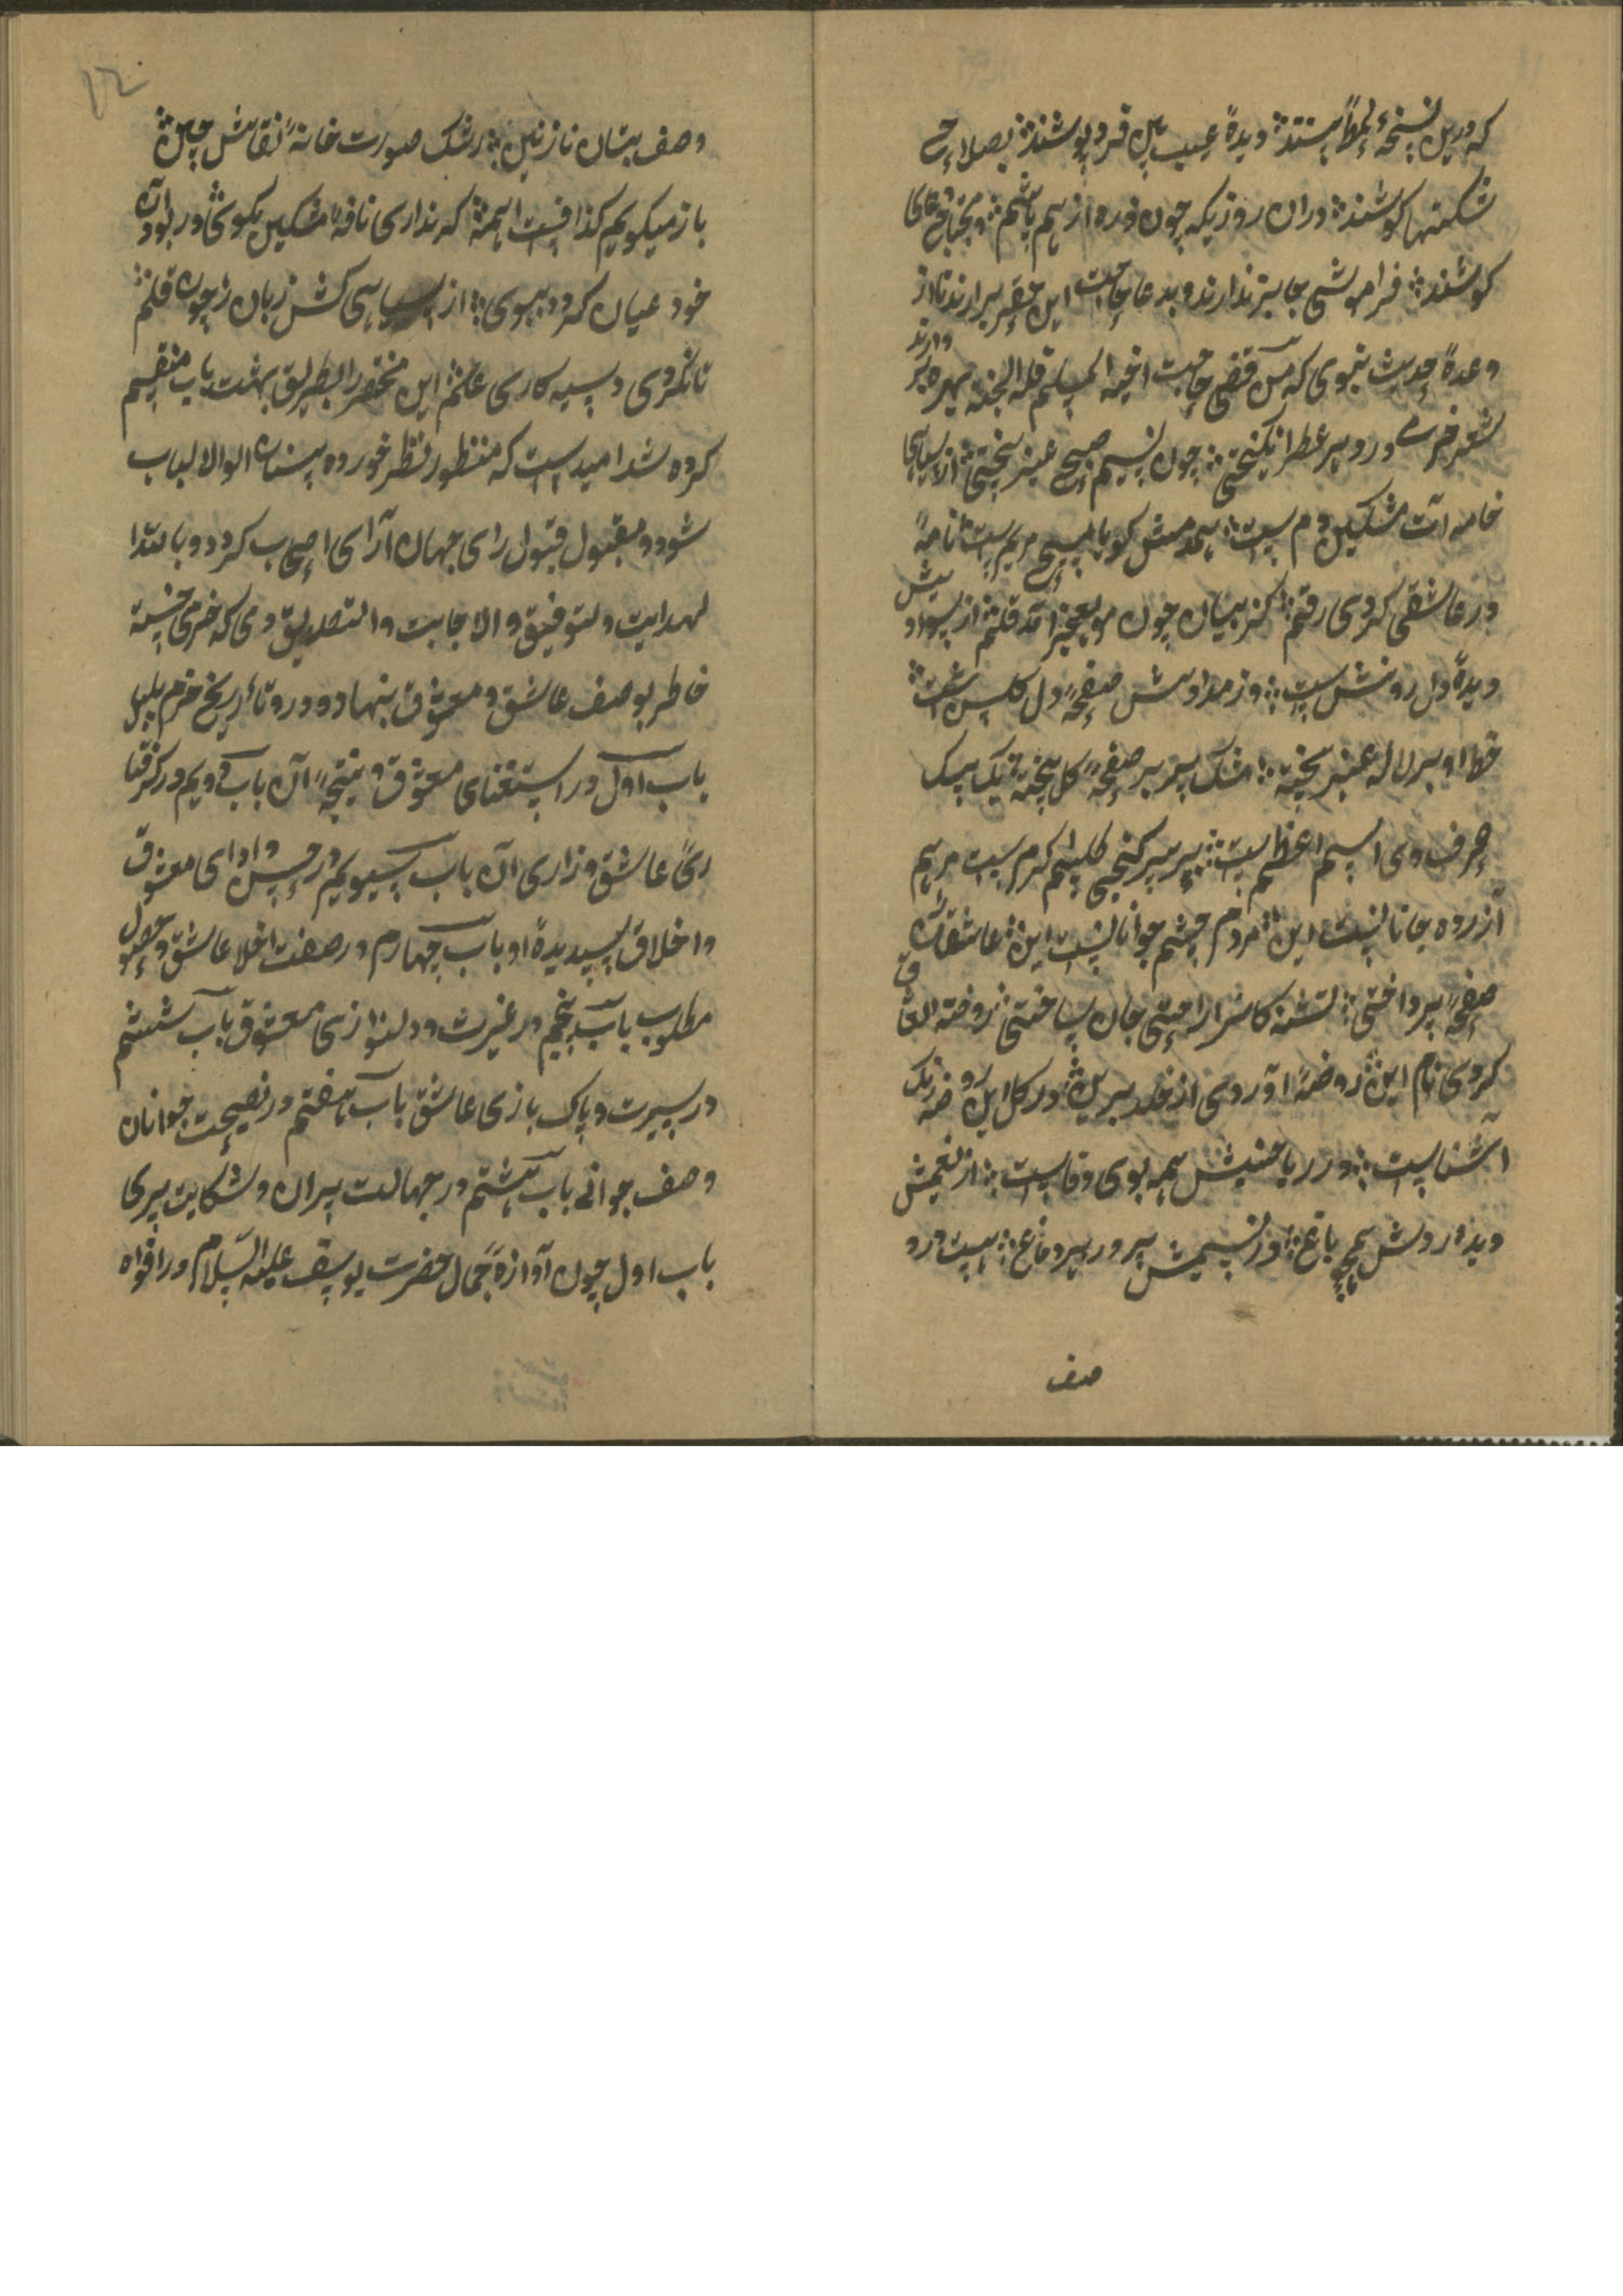 که درین نسخهٔ لمها بینند دیدهٔ عیب بین فرو پوشند بصلاح
شکستها کوشند دران روزیکه چون ذره از هم پاشم
کوشند فراموشی جایز ندارند و بدعا حاجت این حقیر برارند تا از
وعدهٔ حدیث نبوی که من قضی حاجت اخیه المسلم فله الجنه بهره بر دارند
شعر خرمی در و بهر عطر انگیختی چون نسیم صبح عنبر بیختی از سیاهی
خامه ات مشکین دم ست همدمش کو با مسیح مریم ست نامهٔ
در عاشقی کردی رقم کز بیان چون مو بعجز امد قلم از سواد پیش
دیدهٔ دل روشن ست وز مدادش صفحهٔ دل گلشن ست
خط او بر لاله عنبر بیخته مشک بیز بر صفحهٔ گل بیخته یک بیک
حرف وی اسم اعظم ست بر سر گنجی کلیم کرم ست مرهم
آزرده جانانست این مردم چشم جوانانست این عاشقان
صفحهٔ پرداختی تشنه کانرا راحتی جان ساختی روضة العشاق
کردی نام این روضهٔ آوردی از خلد برین در گل این روضه رنگ
آشناست در ریاحینش همه بوی وفاست از نعیمش
دیده روشن همچو باغ وز نسیمش پرورد بر دماغ هست درو
صف
۱۲
وصف بتان نازنین رشک صورت خانهٔ نقاش چین
باز میکویم کذافست اهمه که نداری نافهٔ مشکین بکوی در بود آن
خود عیان کردد ببوی از سیاهی کش زبان را چون قلم
تا نکردی و سیه کاری علم این مختصر را بطریق بهشت باب منقسم
کرده شد امید ست که منظور نظر خورده بینان الوالالباب
شود و مقبول قبول رای جهان آرای اصحاب کردد و بالله
لهدایت ولتوفیق والاجابت والتصدیق دمی که خرمی خسته
خاطر بوصف عاشق و معشوق بنهاد و در و تاریخ خرم بلبل
باب اول در استغنای معشوق و نتیجهٔ آن باب دویم در کرفتا
ری عاشق و زاری آن باب سیویم در حسن وادای معشوق
واخلاق پسیدیدهٔ او باب چهارم در صفت اخلا عاشق و حصول
مطلوب باب پنجم در غیرت و دلنوازی معشوق باب ششم
در سیرت و پاک بازی عاشق باب هفتم در نصیحت جوانان
وصف جوانی باب هشتم در جهالت پیران و شکایت پیری
باب اول چون آوازهٔ جمال حضرت یوسف علیه السلام در افواه